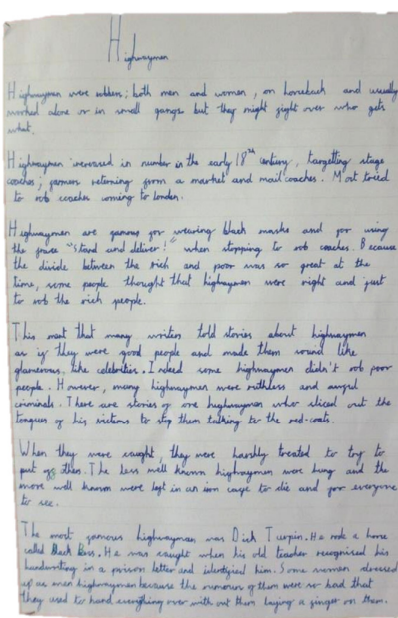 Highwaymen
Highwaymen were robbers; both men and women, on horseback and usually
worked alone or in small gangs but they might fight over who gets
what.
Highwaymen increased in number in the early 18th century, targetting stage
coaches; farmers returning from a market and mail coaches. Most tried
to rob coaches coming to london.
Highwaymen are famous for wearing black masks and for using
the phrase "Stand and deliver!" when stopping to rob coaches. Because
the divide between the rich and poor was so great at the
time, some people thought that highwaymen were right and just
to rob the rich people.
This ment that many writers told stories about highwaymen
as if they were good people and made them sound like
glamerous, like celebrities. Indeed some highwaymen didn't rob poor
people. However, many highwaymen were ruthless and
criminals. There are stories of one highwayman who sliced out the
tongues of his victims to stop them talking to the red-coats.
When they were caught, they were harshly treated to try to
put off others. The less well known highwaymen were hung and the
more well known were kept in an iron cage to die and for everyone
to see.
The most famous highwayman was Dick Turpin. He rode a horse
called Black Bess. He was caught when his old teacher recognised his
handwriting in a prison letter and identified him. Some women dressed
up as men highwaymen because the rumours of them were so bad that
they used to hand everything over with out them laying a finger on them.